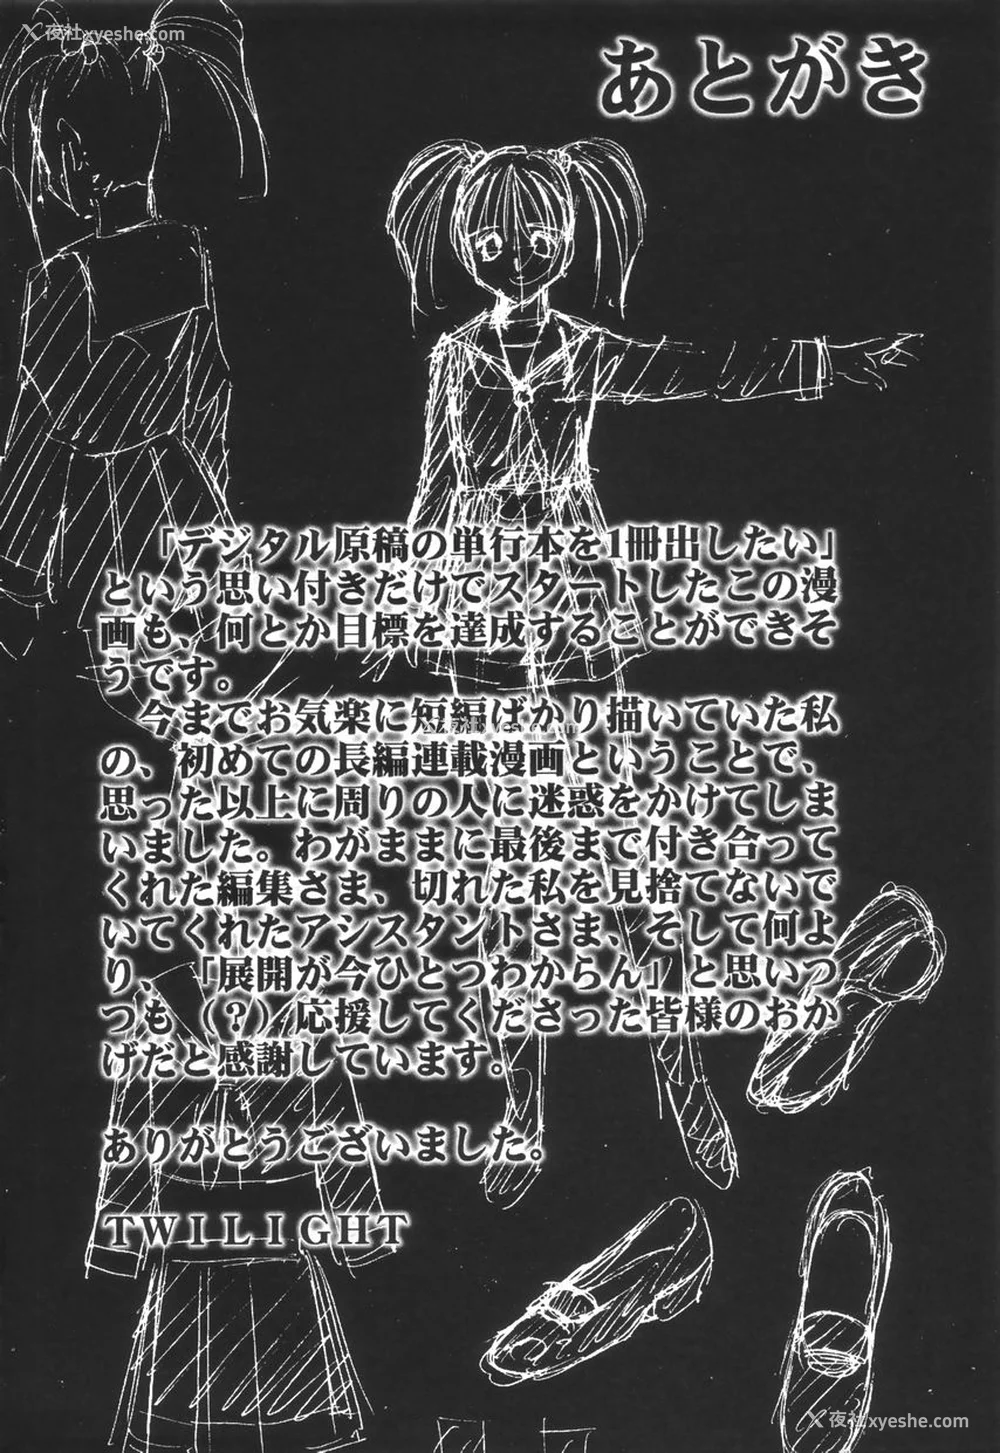 夜社xyeshe.com
あとがき
「デジタル原稿の単行本を1冊出したい」
という思い付きだけでスタートしたこの漫
画も、何とか目標を達成することができそ
うです。
今までお気楽に短編ばかり描いていた私
の、初めての長編連載漫画ということで、
思った以上に周りの人に迷惑をかけてしま
いました。わがままに最後まで付き合って
くれた編集さま、切れた私を見捨てないで
いてくれたアシスタントさま、そして何よ
り、「展開が今ひとつわからん」と思いつ
つも（？）応援してくださった皆様のおか
げだと感謝しています。
ありがとうございました。
ＴＷＩＬＩＧＨＴ
夜社xyeshe.com